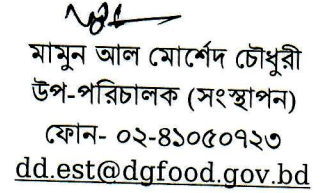 মামুন আল মোর্শেদ চৌধুরী
উপ-পরিচালক (সংস্থাপন)
ফোন- ০২-৪১০৫০৭২৩
dd.est@dgfood.gov.bd